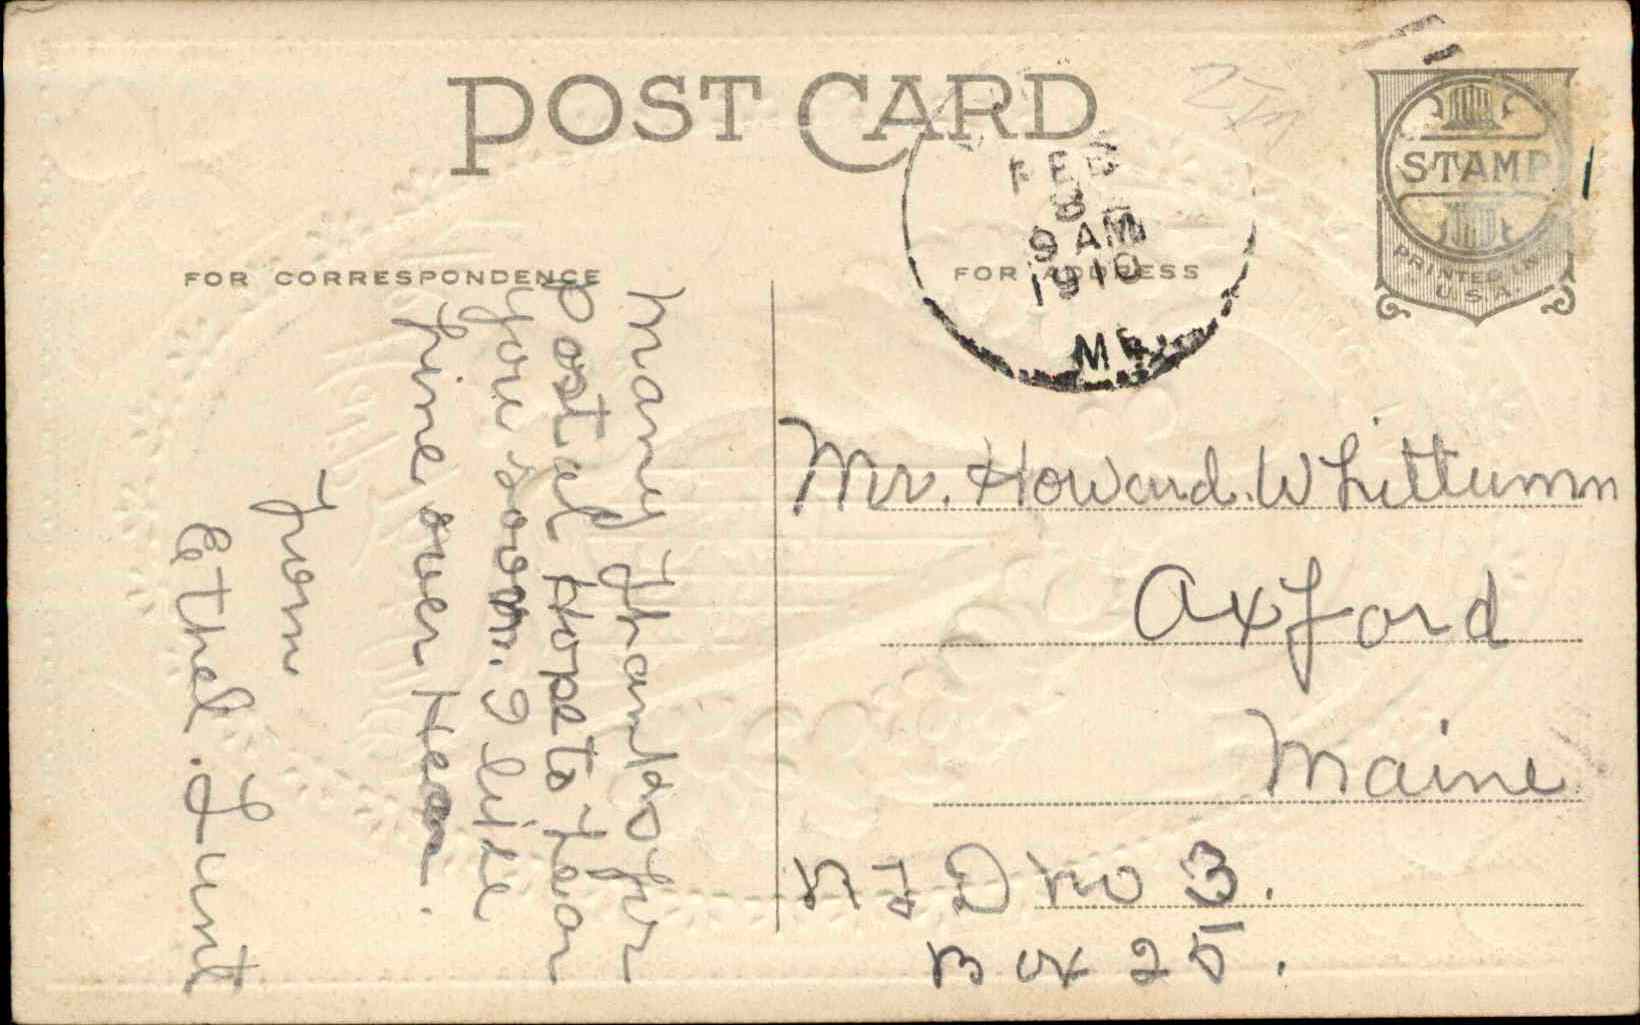 POST CARD
STAMP
PRINTED IN
U.S.A.
FEB
8
9 AM
1910
ME.
FOR CORRESPONDENCE
FOR ADDRESS
Many Thanks for
Postal Hope to Hear
you soon. I like
fine over Hear.
From
Ethel. Lunt
Mr. Howard. Whittumn
Oxford
Maine
R F D no 3.
Box 25.